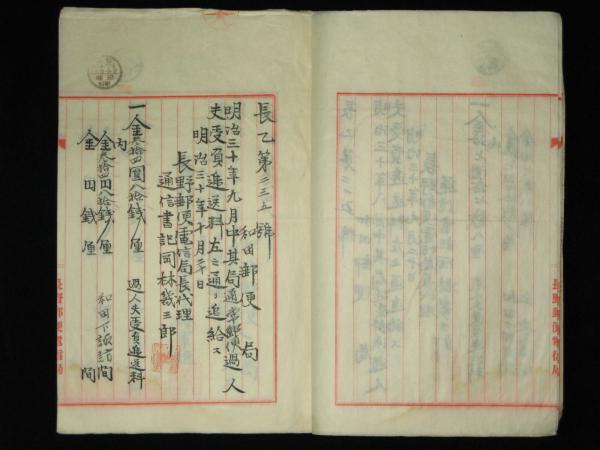 長乙第二三五號
和田郵便局
明治三十年九月中其局逓送郵便過人
夫受負逓送料左之通リ追給ス
明治三十年十月二十日
長野郵便電信局長代理
通信書記岡林幾三郎
一金叁拾四圓八拾錢厘 過人夫受負逓送料
内
金叁拾四円八拾錢厘 和田下諏訪間
金 円 錢 厘 間
長野郵便電信局